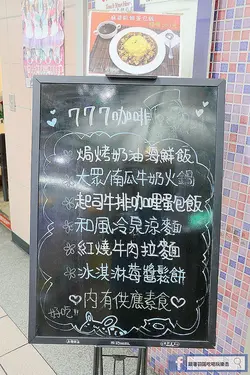 777咖啡
焗烤奶油海鮮飯
大眾/南瓜牛奶火鍋
起司牛排咖哩蛋包飯
和風冷泉涼麵
紅燒牛肉拉麵
冰淇淋莓醬鬆餅
內有供應素食
好吃!!